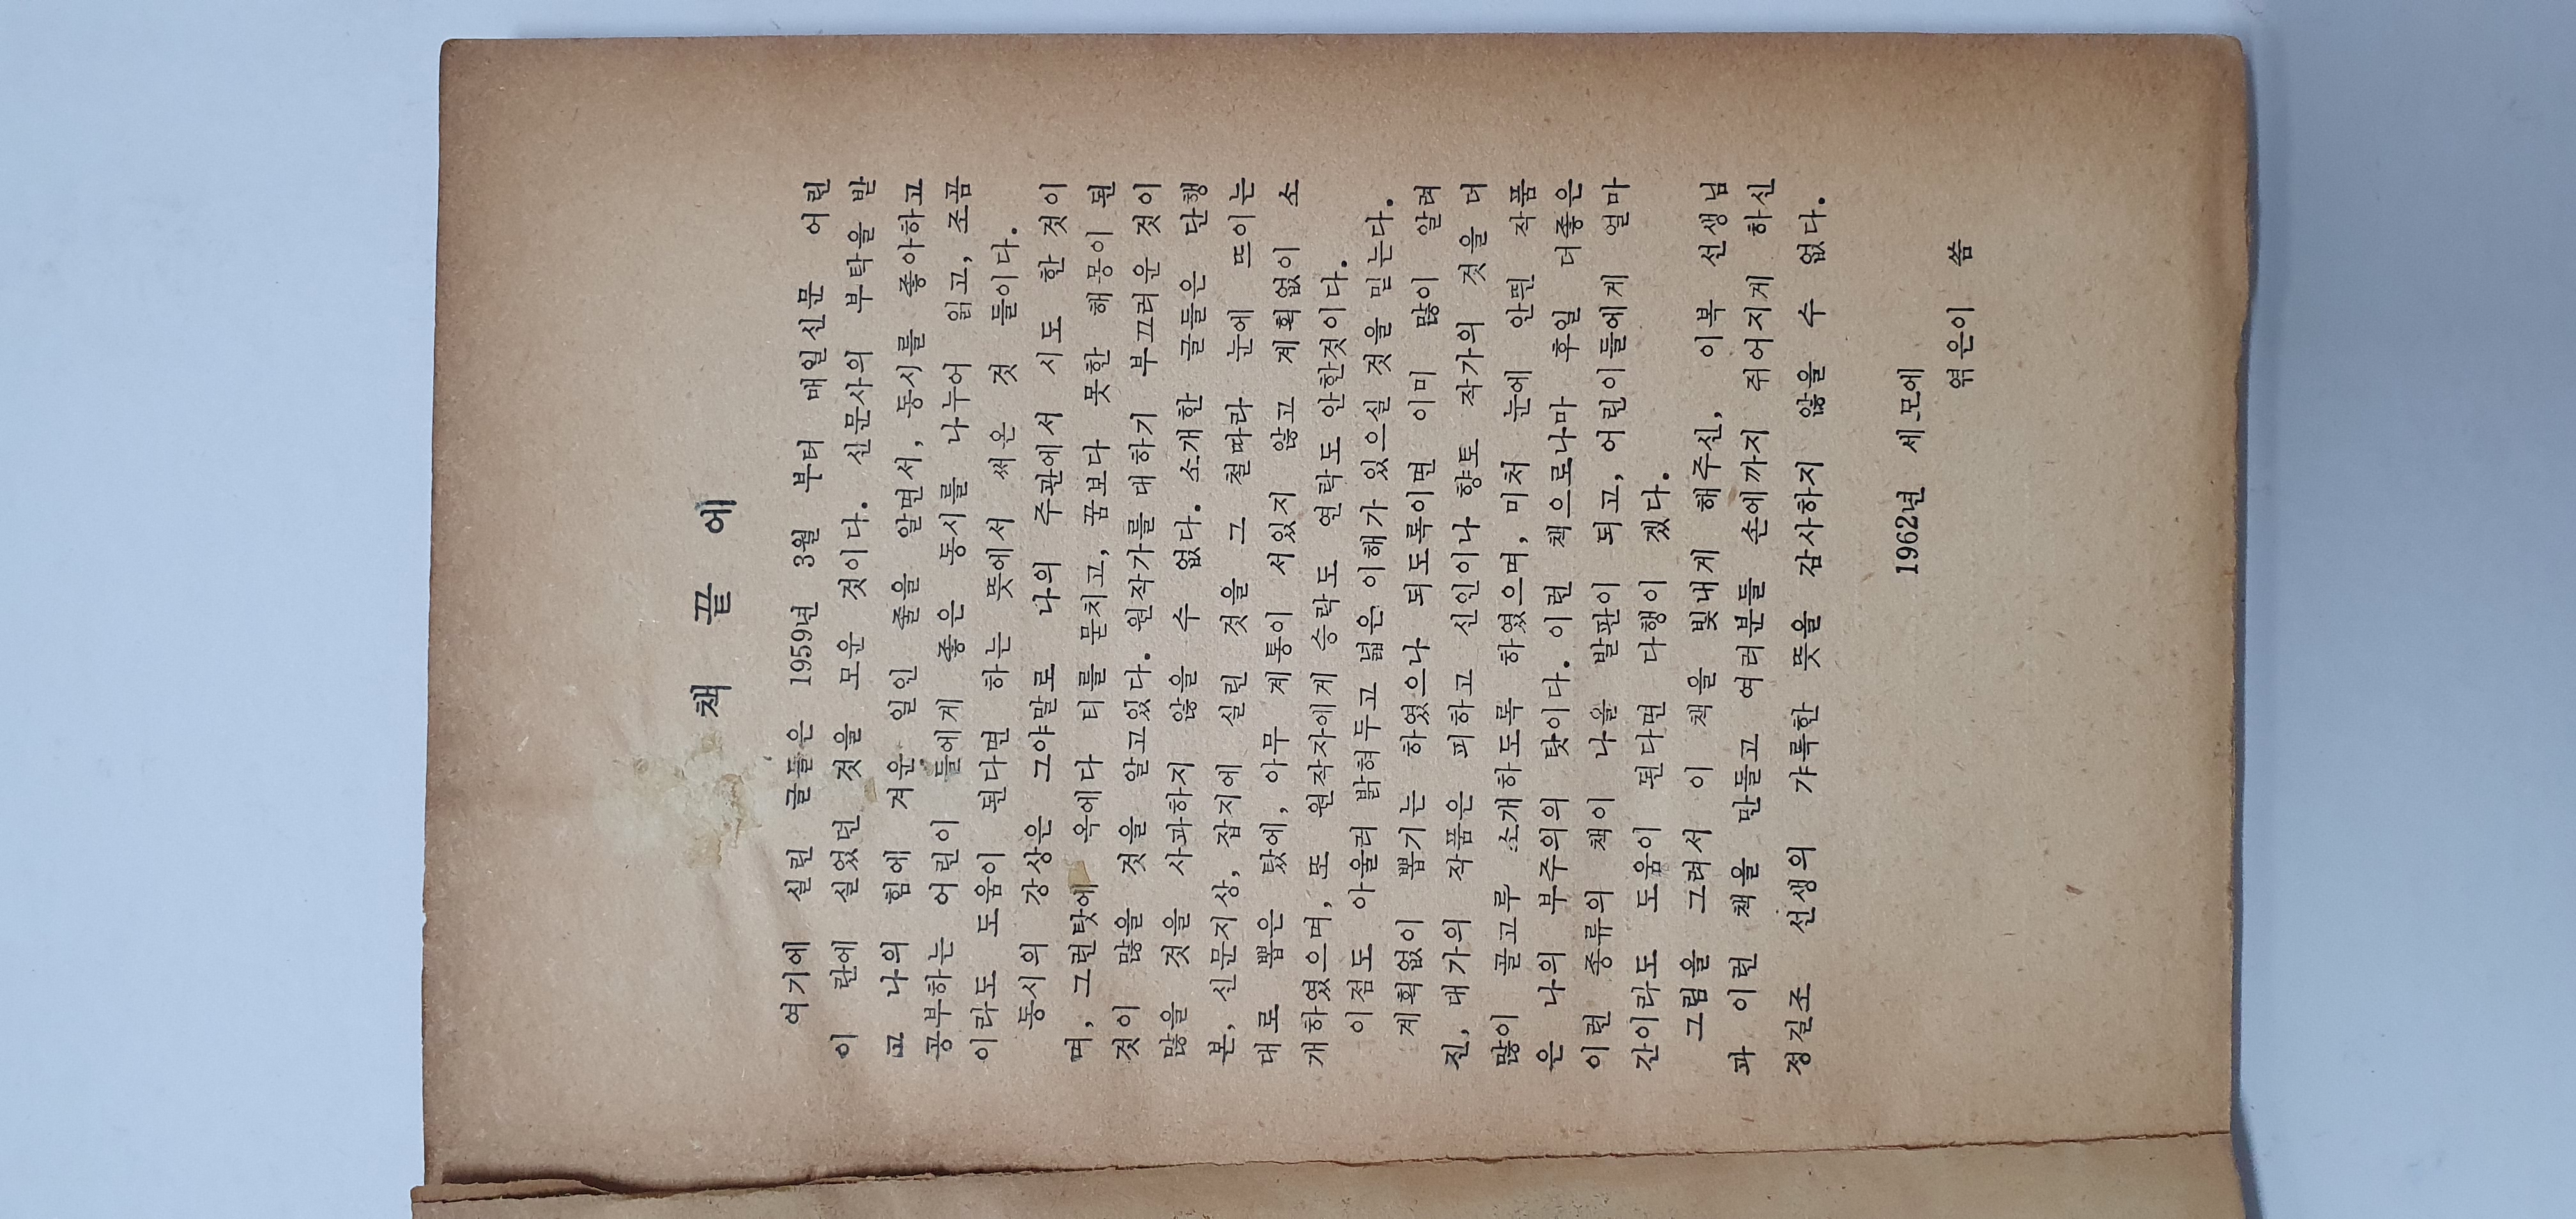 책 끝 에
여기에 실린 글들은 1959년 3월 부터 매일신문 어린
이 란에 실었던 것을 모운 것이다. 신문사의 부탁을 받
고 나의 힘에 겨운 일인 줄을 알면서, 동시를 좋아하고
공부하는 어린이 들에게 좋은 동시를 나누어 읽고, 조곰
이라도 도움이 된다면 하는 뜻에서 써온 것 들이다.
동시의 감상은 그야말로 나의 주관에서 시도 한 것이
며, 그런탓에 옥에다 티를 묻치고, 꿈보다 못한 해몽이 된
것이 많을 것을 알고있다. 원작가를 대하기 부끄러운 것이
많을 것을 사과하지 않을 수 없다. 소개한 글들은 단행
본, 신문지상, 잡지에 실린 것을 그 철따라 눈에 뜨이는
대로 뽑은 탓에, 아무 계통이 서있지 않고 계획없이 소
개하였으며, 또 원작자에게 승락도 연락도 안한것이다.
이점도 아울러 밝혀두고 넓은 이해가 있으실 것을 믿는다.
계획없이 뽑기는 하였으나 되도록이면 이미 많이 알려
진, 대가의 작품은 피하고 신인이나 향토 작가의 것을 더
많이 골고루 소개하도록 하였으며, 미처 눈에 안띈 작품
은 나의 부주의의 탓이다. 이런 책으로나마 후일 더좋은
이런 종류의 책이 나올 발판이 되고, 어린이들에게 얼마
간이라도 도움이 된다면 다행이 겠다.
그림을 그려서 이 책을 빛내게 해주신, 이복 선생님
과 이런 책을 만들고 여러분들 손에까지 쥐어지게 하신
정길조 선생의 갸륵한 뜻을 감사하지 않을 수 없다.
1962년 세모에
엮은이 씀